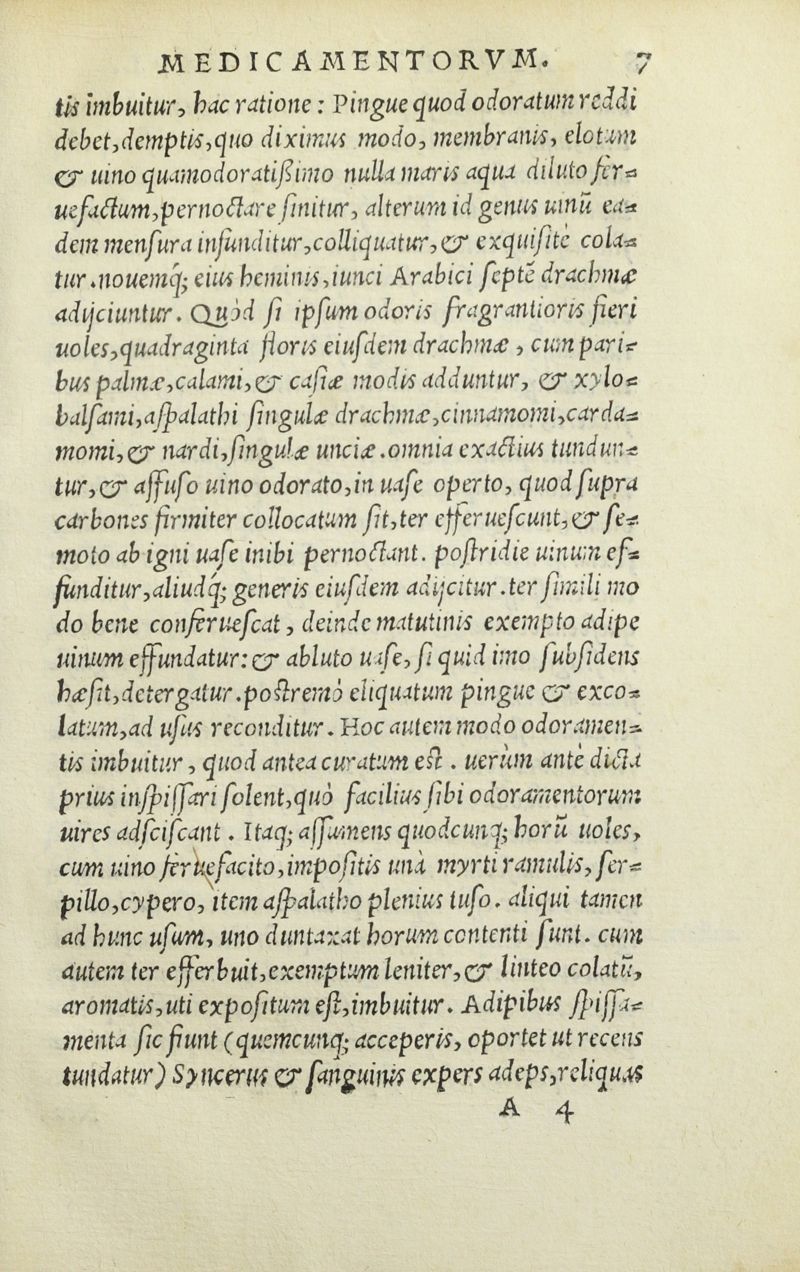 MEDICAMENTORVM. 7
tis imbuitur, hac ratione: Pingue quod odoratum reddi
debet, demptis, quo diximus modo, membranis, elotum
& uino quamodoratißimo nulla maris aqua diluto fer=
uefactum, pernoctare sinitur, alterum id genus uinū ea=
dem mensura infunditur, colliquatur, & exquisitè cola=
tur. nouemq; eius heminis, iunci Arabici septē drachmæ
adijciuntur. Quòd si ipsum odoris fragrantioris fieri
uoles, quadraginta floris eiusdem drachmæ, cum pari=
bus palmæ, calami, & casiæ modis adduntur, & xylo=
balsami, aspalathi singulæ drachmæ, cinnamomi, carda=
momi, & nardi, singulæ unciæ. omnia exactius tundun=
tur, & affuso uino odorato, in uase operto, quod supra
carbones firmiter collocatum sit, ter efferuescunt, & se=
moto ab igni uase inibi pernoctant. postridie uinum ef=
funditur, aliudq; generis eiusdem adijcitur. ter simili mo
do bene conferuescat, deinde matutinis exempto adipe
uinum effundatur: & abluto uase, si quid imo subsidens
hæsit, detergatur. postremò eliquatum pingue & exco=
latum, ad usus reconditur. Hoc autem modo odoramen=
tis imbuitur, quod antea curatum est. uerùm antè dicta
prius inspissari solent, quò facilius sibi odoramentorum
uires adsciscant. Itaq; assumens quodcunq; horū uoles,
cum uino feruefacito, impositis unà myrti ramulis, ser=
pillo, cypero, item aspalatho plenius tuso. aliqui tamen
ad hunc usum, uno duntaxat horum contenti sunt. cum
autem ter efferbuit, exemptum leniter, & linteo colatū,
aromatis, uti expositum est, imbuitur. Adipibus spissa=
menta sic fiunt (quemcunq; acceperis, oportet ut recens
tundatur) Syncerus & sanguinis expers adeps, reliquas
A 4